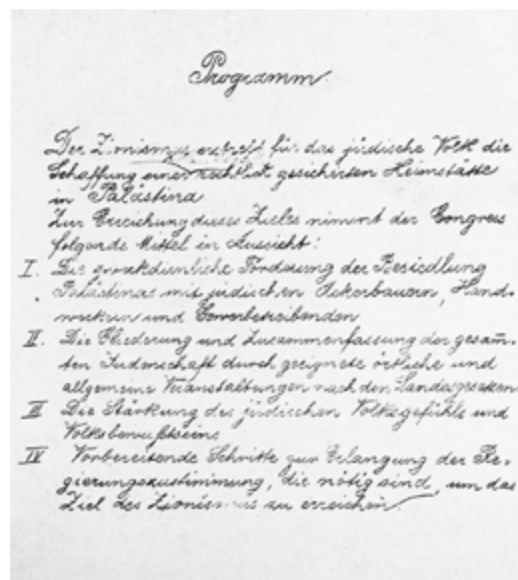 Programm
Der Zionismus erstrebt für das jüdische Volk die
Schaffung einer rechtlich gesicherten Heimstätte
in Palästina
Zur Erreichung dieses Zieles nimmt der Congress
folgende Mittel in Aussicht:
I. Die zweckdienliche Förderung der Besiedlung
Palästinas mit jüdischen Ackerbauern, Hand-
werkern und Gewerbetreibenden
II. Die Gliederung und Zusammenfassung der gesam̄-
ten Judenschaft durch geeignete örtliche und
allgemeine Veranstaltungen nach den Landesgesetzen
III Die Stärkung des jüdischen Volksgefühls und
Volksbewußtseins
IV Vorbereitende Schritte zur Erlangung der Re-
gierungszustimmung, die nötig sind, um das
Ziel des Zionismus zu erreichen.